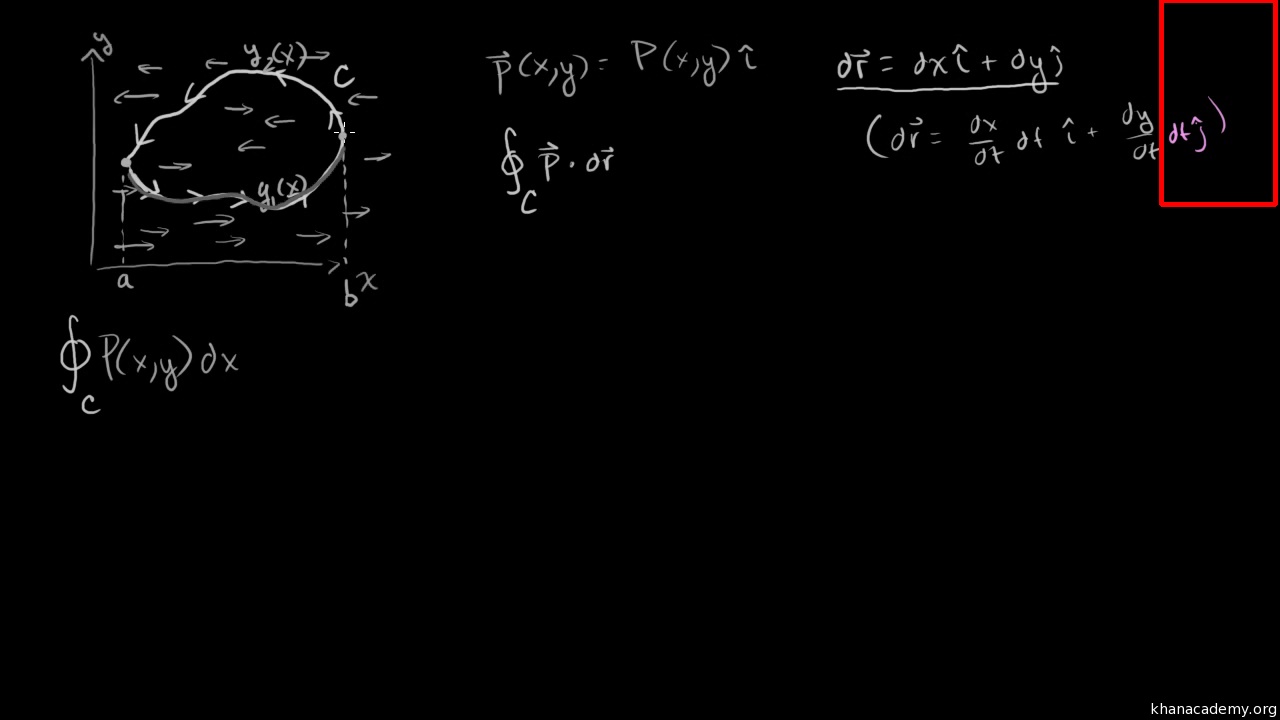 y
y₂(x)
C
y₁(x)
a
b
x
p⃗(x,y) = P(x,y) î
∮_C p⃗ · dr⃗
dr⃗ = dx î + dy ĵ
(dr⃗ = dx/dt dt î + dy/dt dt ĵ)
∮_C P(x,y) dx
khanacademy.org